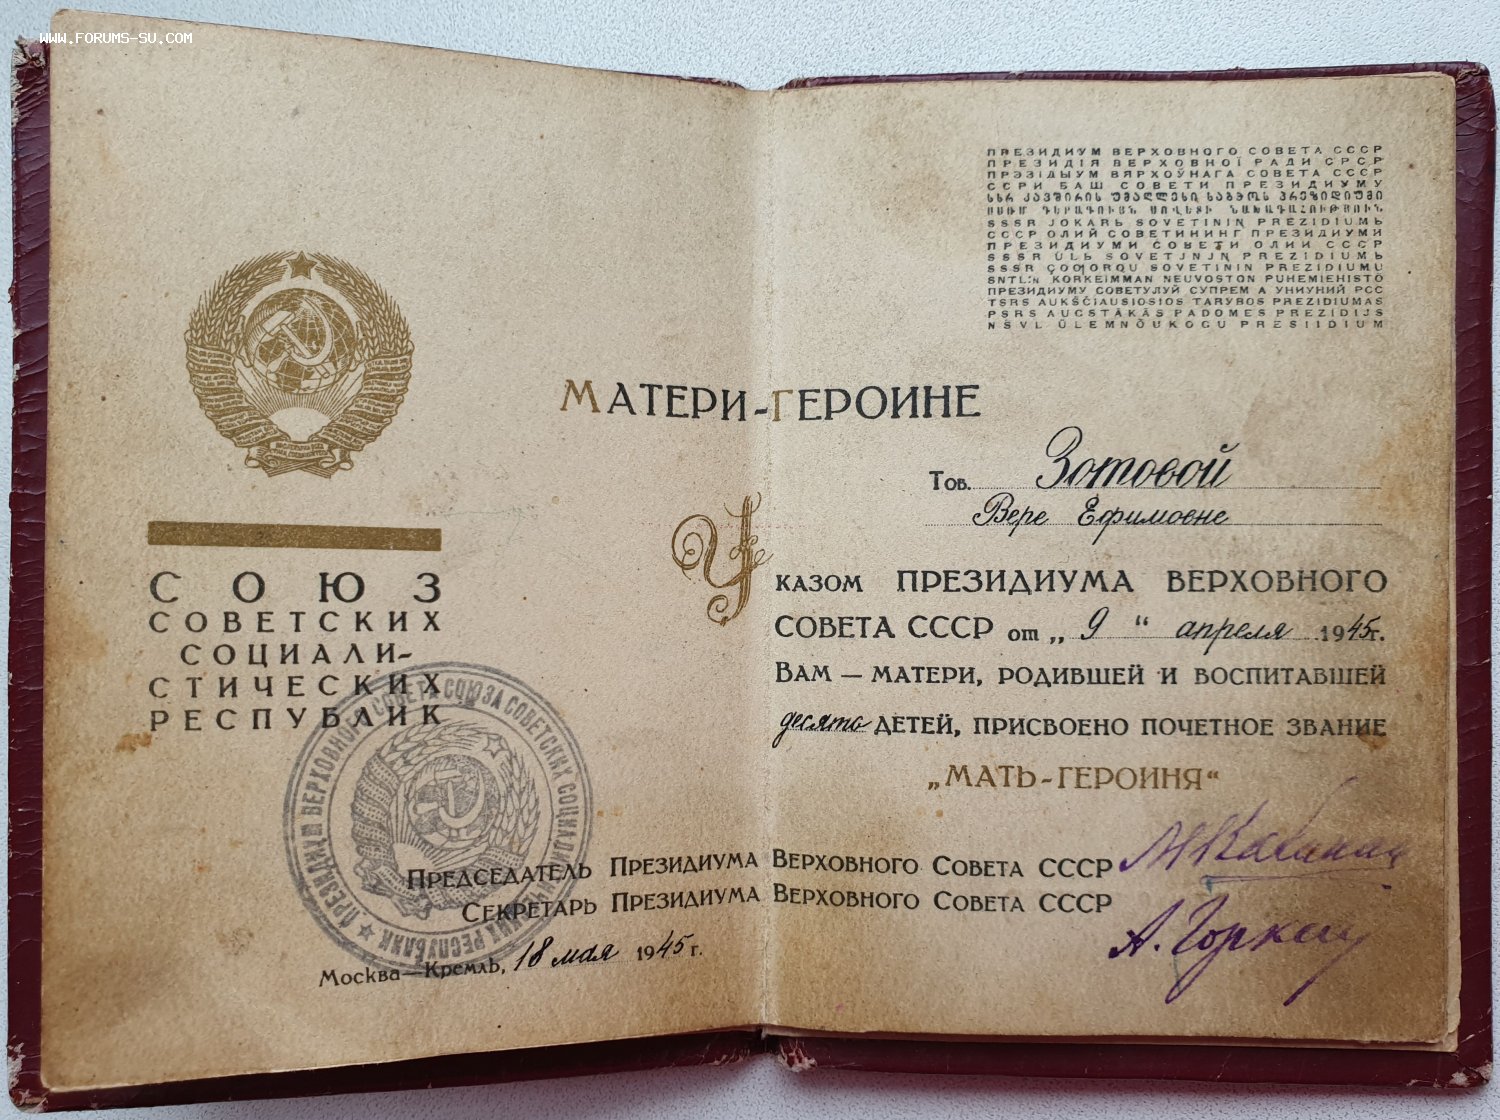 www.FORUMS-SU.COM
СОЮЗ
СОВЕТСКИХ
СОЦИАЛИ-
СТИЧЕСКИХ
РЕСПУБЛИК
ПРЕЗИДИУМ ВЕРХОВНОГО СОВЕТА СССР
ПРЕЗИДІЯ ВЕРХОВНОЇ РАДИ СРСР
ПРЭЗІДЫУМ ВЯРХОЎНАГА СОВЕТА СССР
ССРИ БАШ СОВЕТИ ПРЕЗИДИУМУ
სსრ კავშირის უმაღლესი საბჭოს პრეზიდიუმი
SSSR JOKARЬ SOVETININ PREZIDIUMЬ
СССР ОЛИЙ СОВЕТИНИНГ ПРЕЗИДИУМИ
ПРЕЗИДИУМИ СОВЕТИ ОЛИИ СССР
PREZIDIUMЬ
SOVETININ PREZIDIUMU
KORKEIMMAN NEUVOSTON PUHEMIEHISTÖ
ПРЕЗИДИУМУ СОВЕТУЛУЙ СУПРЕМ А УНИУНИЙ РСС
TSRS AUKŠČIAUSIOSIOS TARYBOS PREZIDIUMAS
PSRS AUGSTĀKĀS PADOMES PREZIDIJS
NSVL ÜLEMNÕUKOGU PRESIIDIUM
МАТЕРИ-ГЕРОИНЕ
Тов. Зотовой
Вере Ефимовне
УКАЗОМ ПРЕЗИДИУМА ВЕРХОВНОГО
СОВЕТА СССР от „ 9 “ апреля 1945г.
ВАМ — МАТЕРИ, РОДИВШЕЙ И ВОСПИТАВШЕЙ
десять ДЕТЕЙ, ПРИСВОЕНО ПОЧЕТНОЕ ЗВАНИЕ
„МАТЬ-ГЕРОИНЯ“
ПРЕДСЕДАТЕЛЬ ПРЕЗИДИУМА ВЕРХОВНОГО СОВЕТА СССР М Калинин
СЕКРЕТАРЬ ПРЕЗИДИУМА ВЕРХОВНОГО СОВЕТА СССР А. Горкин
Москва—Кремль, 18 мая 1945 г.
ПРЕЗИДИУМ ВЕРХОВНОГО СОВЕТА СОЮЗА СОВЕТСКИХ СОЦИАЛИСТИЧЕСКИХ РЕСПУБЛИК